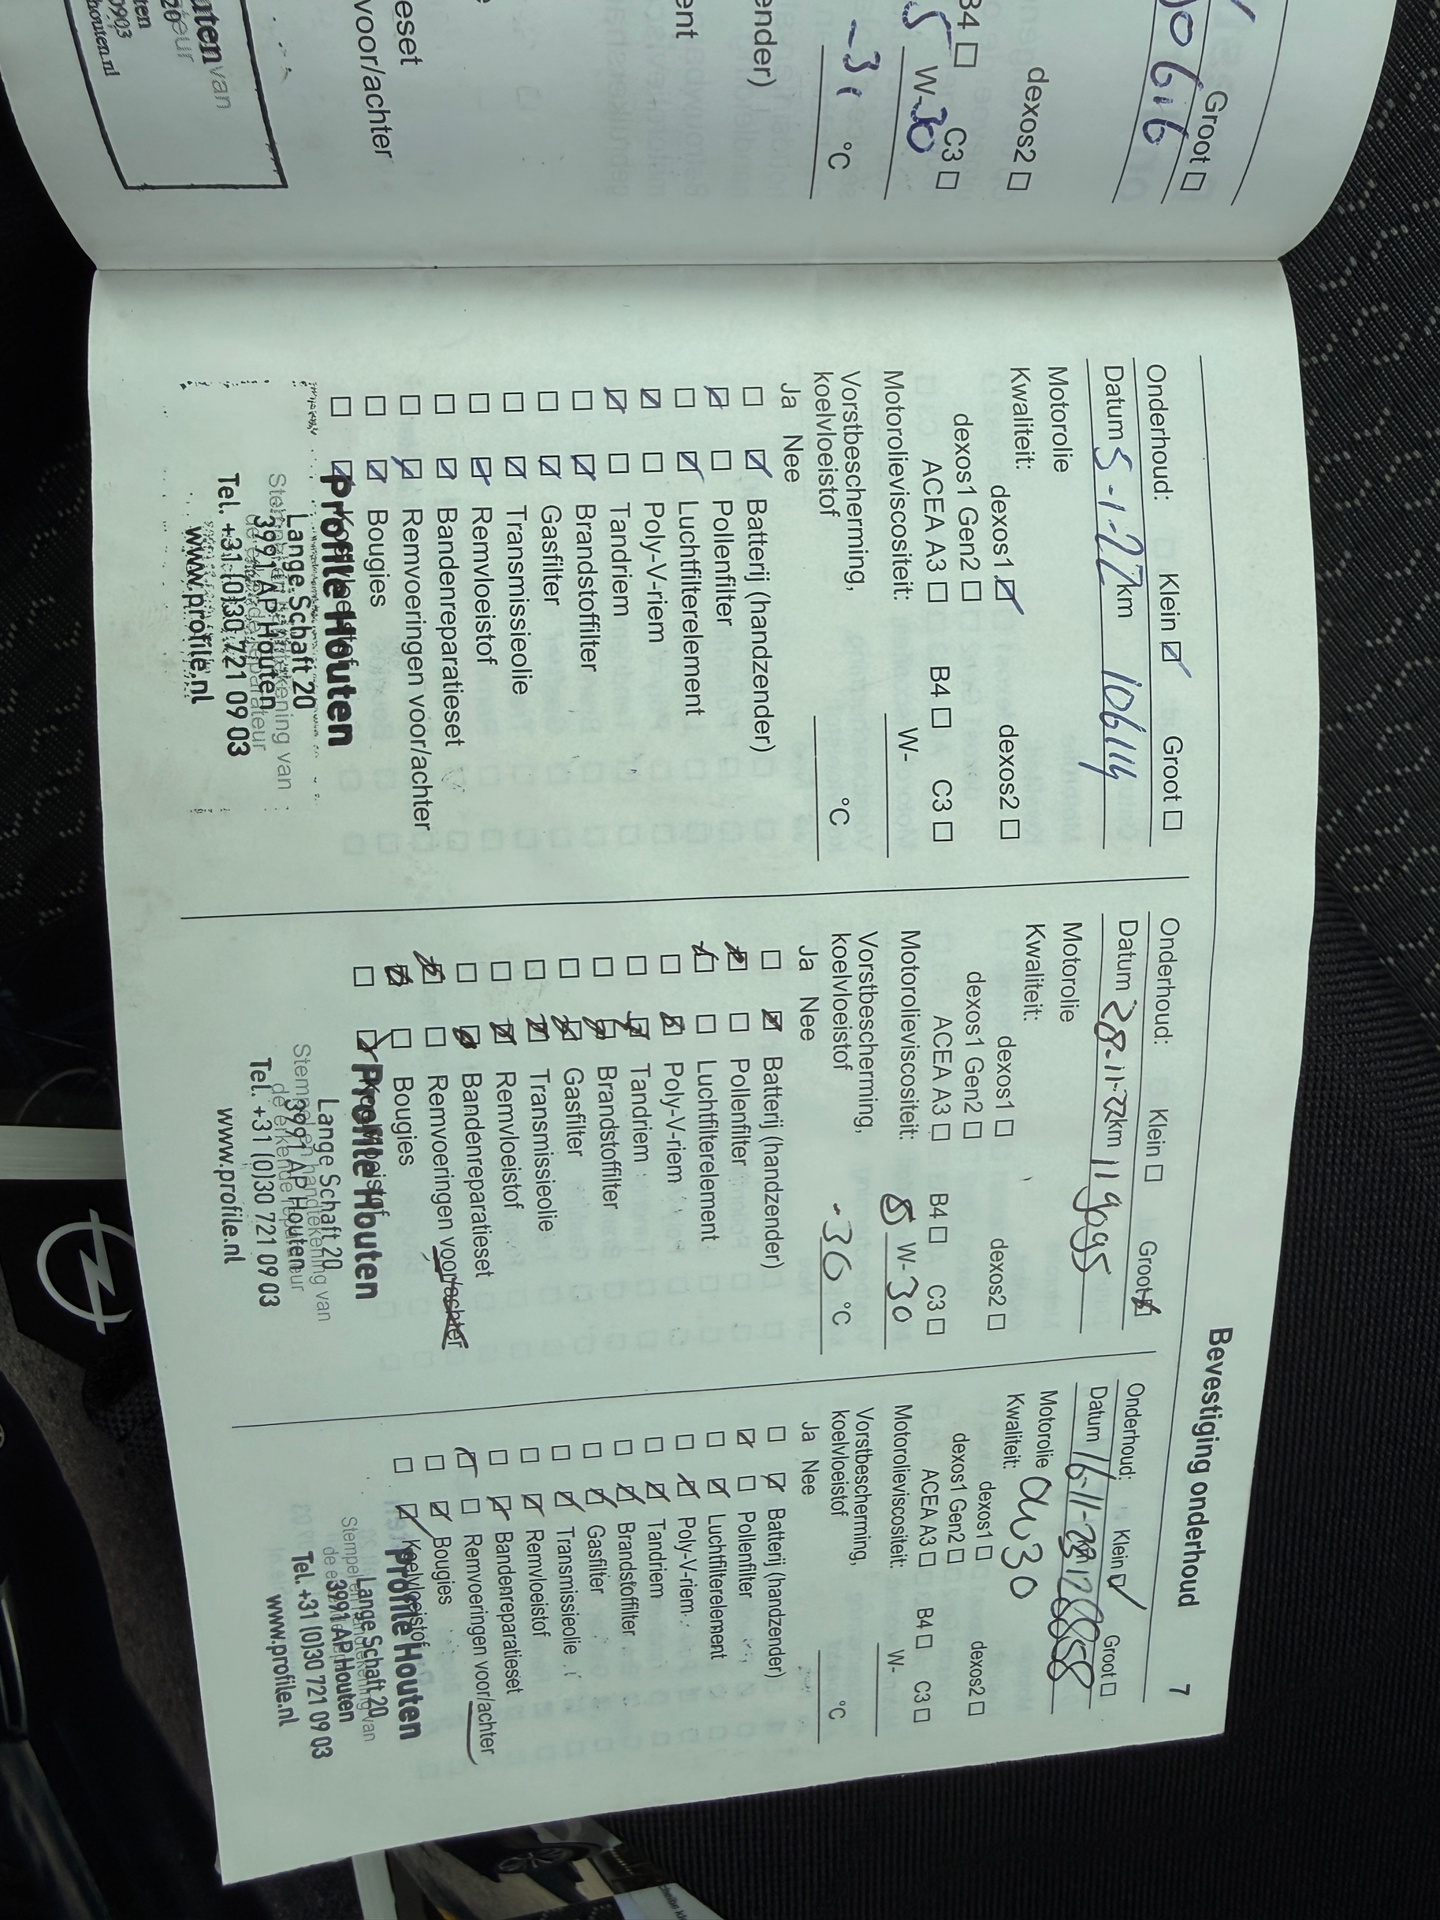 Groot
0616
dexos2
B4
C3
5 W-30
-31 °C
ender)
ent
eset
voor/achter
uten van
eur
20
ten
0903
houten.nl
Bevestiging onderhoud 7
Onderhoud: Klein Groot
Datum 5-1-22 km 106114
Motorolie
Kwaliteit: dexos1 dexos2
dexos1 Gen2
ACEA A3 B4 C3
Motorolieviscositeit: W-
Vorstbescherming,
koelvloeistof °C
Ja Nee
Batterij (handzender)
Pollenfilter
Luchtfilterelement
Poly-V-riem
Tandriem
Brandstoffilter
Gasfilter
Transmissieolie
Remvloeistof
Bandenreparatieset
Remvoeringen voor/achter
Bougies
Koelvloeistof
Profile Houten
Lange Schaft 20
3991 AP Houten
Tel. +31 (0)30 721 09 03
www.profile.nl
Stempel en handtekening van
de erkende reparateur
Onderhoud: Klein Groot
Datum 28-11-22 km 119095
Motorolie
Kwaliteit: dexos1 dexos2
dexos1 Gen2
ACEA A3 B4 C3
Motorolieviscositeit: 5 W-30
Vorstbescherming,
koelvloeistof -36 °C
Ja Nee
Batterij (handzender)
Pollenfilter
Luchtfilterelement
Poly-V-riem
Tandriem
Brandstoffilter
Gasfilter
Transmissieolie
Remvloeistof
Bandenreparatieset
Remvoeringen voor/achter
Bougies
Koelvloeistof
Profile Houten
Lange Schaft 20
3991 AP Houten
Tel. +31 (0)30 721 09 03
www.profile.nl
Stempel en handtekening van
de erkende reparateur
Onderhoud: Klein Groot
Datum 16-11-23 128858
Motorolie 0W30
Kwaliteit: dexos1 dexos2
dexos1 Gen2
ACEA A3 B4 C3
Motorolieviscositeit: W-
Vorstbescherming,
koelvloeistof °C
Ja Nee
Batterij (handzender)
Pollenfilter
Luchtfilterelement
Poly-V-riem
Tandriem
Brandstoffilter
Gasfilter
Transmissieolie
Remvloeistof
Bandenreparatieset
Remvoeringen voor/achter
Bougies
Koelvloeistof
Profile Houten
Lange Schaft 20
3991 AP Houten
Tel. +31 (0)30 721 09 03
www.profile.nl